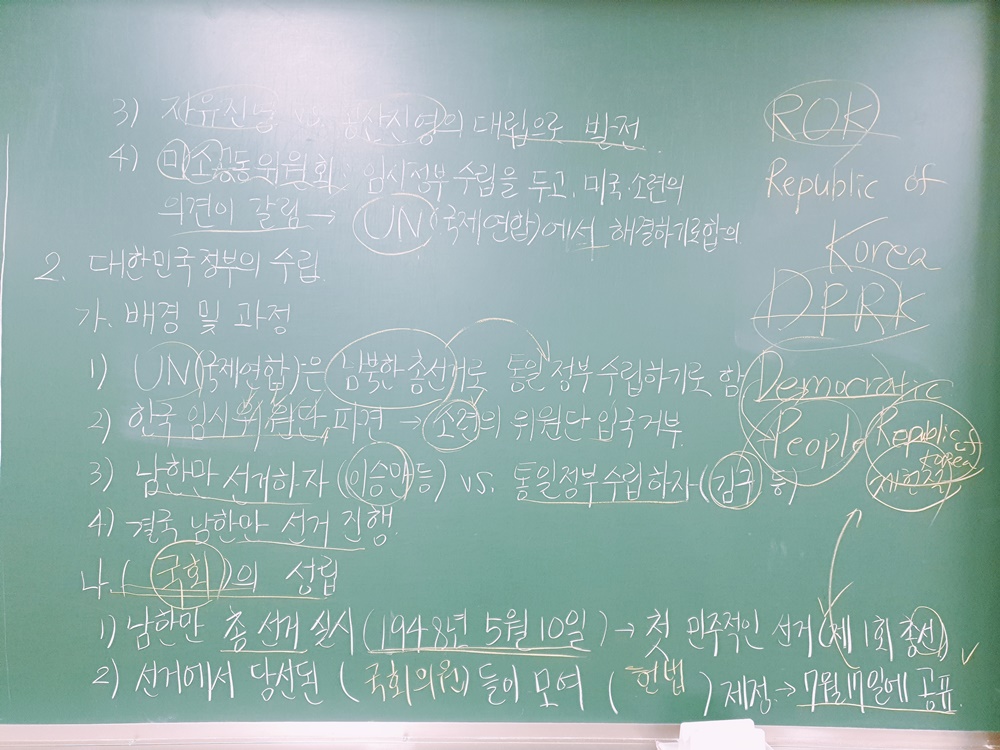 3) 자유진영 vs. 공산진영의 대립으로 발전
4) 미소공동위원회: 임시정부 수립을 두고, 미국·소련의
의견이 갈림 → UN(국제연합)에서 해결하기로 합의
2. 대한민국 정부의 수립
가. 배경 및 과정
1) UN(국제연합)은 남북한 총선거로 통일정부 수립하기로 함
2) 한국 임시 위원단 파견 → 소련의 위원단 입국거부
3) 남한만 선거하자 (이승만 등) vs. 통일정부 수립하자 (김구 등)
4) 결국 남한만 선거 진행
나. (국회)의 성립
1) 남한만 총 선거 실시 (1948년 5월 10일) → 첫 민주적인 선거 (제 1회 총선)
2) 선거에서 당선된 (국회의원)들이 모여 (헌법) 제정 → 7월 17일에 공표
ROK
Republic of
Korea
DPRK
Democratic
People Republic of
Korea
제헌절